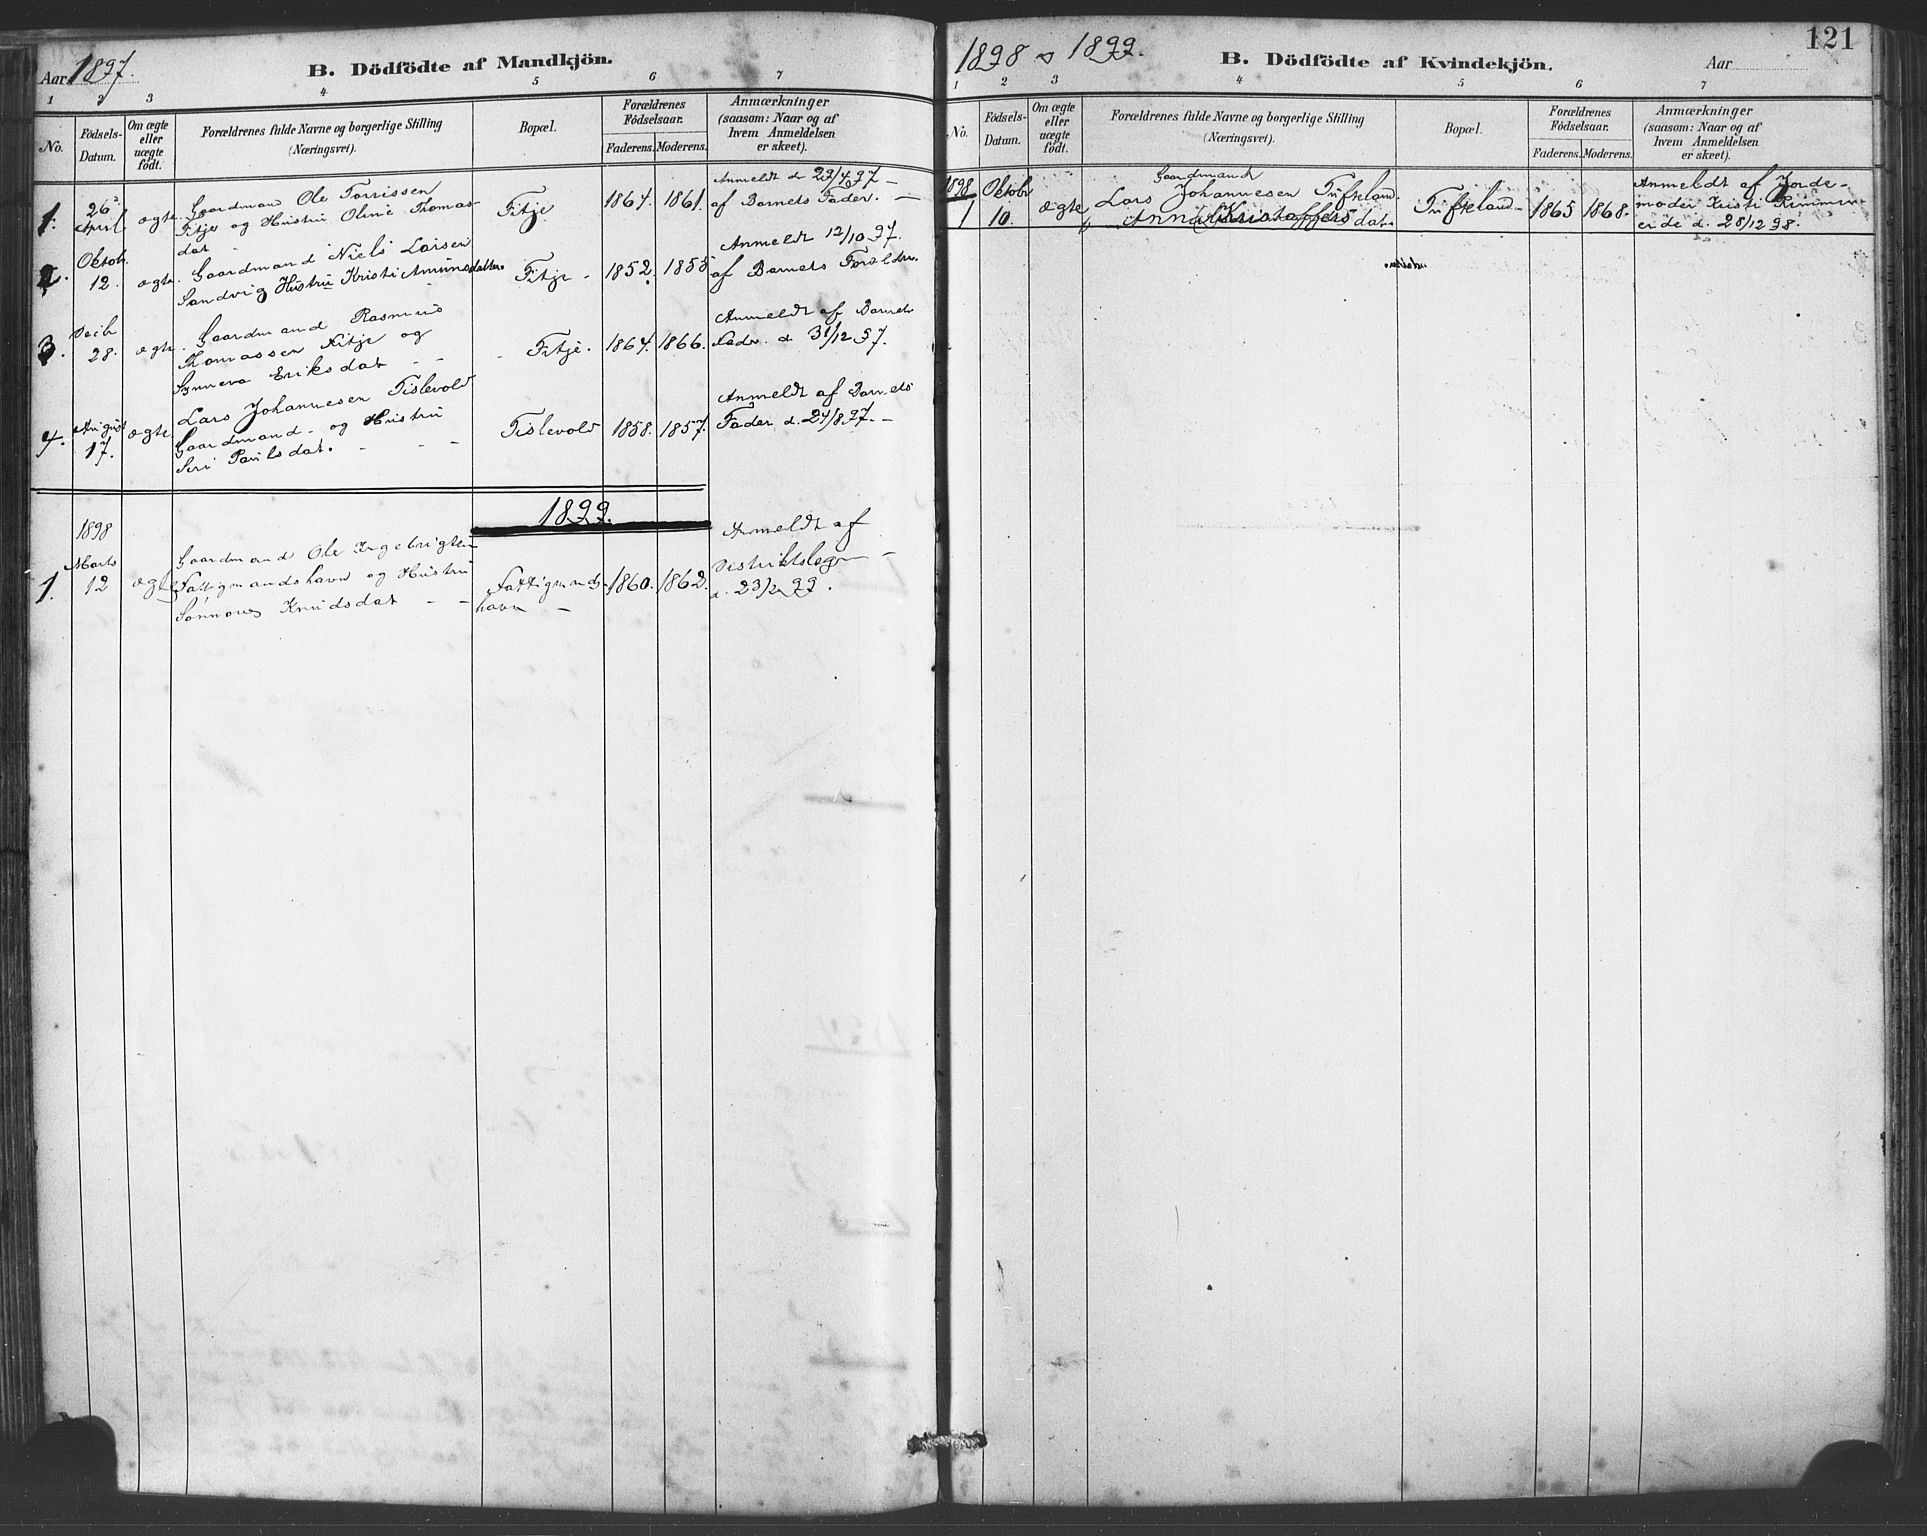 Aar 1897.
B. Dödfödte af Mandkjön.
1 2 3 4 5 6 7
No.
Födsels-Datum.
Om ægte eller uægte födt.
Forældrenes fulde Navne og borgerlige Stilling (Næringsvei).
Bopæl.
Forældrenes Födselsaar.
Faderens. Moderens.
Anmærkninger (saasom: Naar og af hvem Anmeldelsen er skeet).
1. 26 April ægte. Gaardmand Ole Torrissen
Fitje og Hustru Oline Thomas-
dat
Fitje 1864. 1861.
Anmeldt d 29/4 97 –
af Barnets Fader. –
2. Oktob. 12. ægte. Gaardmand Niels Larsen
Sandvig Hustru Kristi Amunsdatter
Fitje - 1852. 1855
Anmeldt 12/10 97.
af Barnets Forældre.
3. Decbr 28. ægte. Gaardmand Rasmus
Thomassen Fitje og
Synneva Eriksdat - -
Fitje. 1864. 1866.
Anmeldt af Barnets
Fader. d. 31/12 97.
4. August 17. ægte. Lars Johannesen Tislevold
Gaardmand - og Hustru
Seri Paulsdat. - - -
Tislevold 1858. 1857.
Anmeldt af Barnets
Fader d. 24/8 97. –
1899.
1898
1. Marts 12 ægte Gaardmand Ole Ingebrigtsen
Fattigmandshavn og Hustru
Knudsdat - -
Fattigmands-
havn –
1860. 1862.
Anmeldt af
Distriktslægen –
d. 23/2 99.
1898 & 1899.
B. Dödfödte af Kvindekjön.
Aar
121
1 2 3 4 5 6 7
No.
Födsels-Datum.
Om ægte eller uægte födt.
Forældrenes fulde Navne og borgerlige Stilling (Næringsvei).
Bopæl.
Forældrenes Födselsaar.
Faderens. Moderens.
Anmærkninger (saasom: Naar og af hvem Anmeldelsen er skeet).
1898
1 Oktobr 10. ægte
Gaardmand
Lars Johannesen Tufteland.
Anna Kristoffersdat.
Tufteland - 1865 1868.
Anmeldt af Jorde-
moder Kristi
d. 28/12 98.